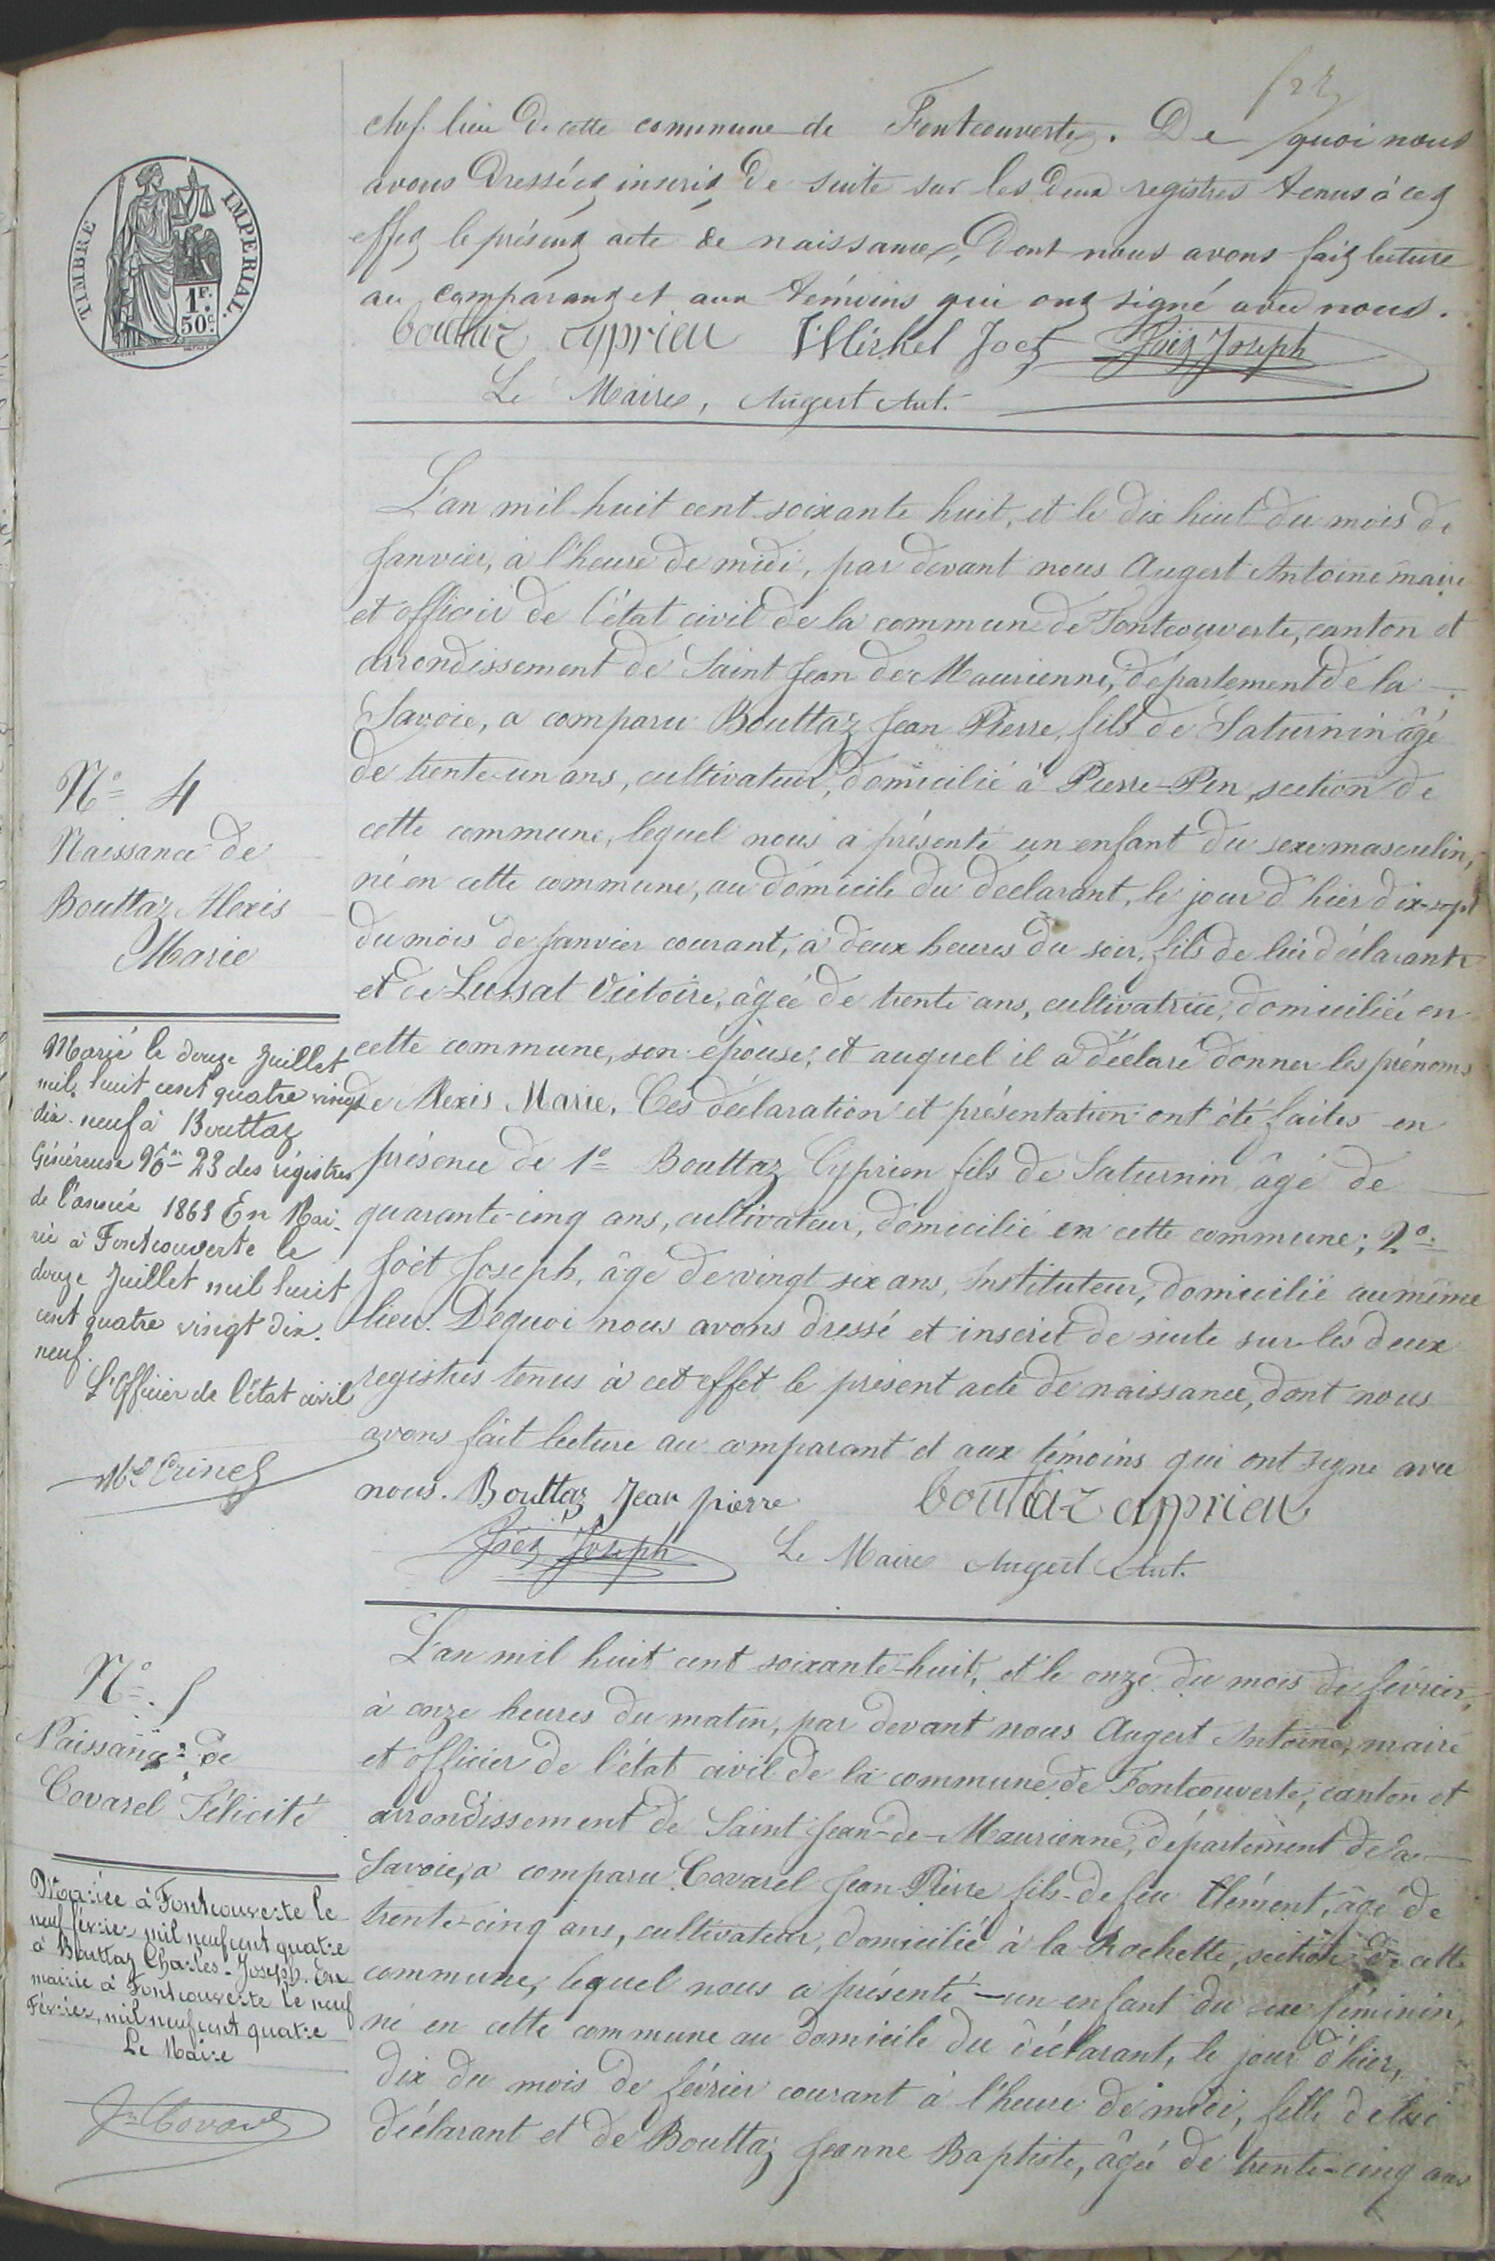 chef lieu de cette commune de Fontcouverte. De quoi nous
avons dressé et inscrit de suite sur les deux registres tenus à cet
effet le présent acte de naissance, dont nous avons fait lecture
au comparant et aux témoins qui ont signé avec nous.
bouttaz cyprien Michel Joet Joët Joseph
Le Maire, Augert Ant.
TIMBRE IMPERIAL.
1F.
50c.
L'an mil huit cent soixante huit, et le dix huit du mois de
Janvier, à l'heure de midi, par devant nous Augert Antoine maire
et officier de l'état civil de la commune de Fontcouverte, canton et
arrondissement de Saint Jean de Maurienne, département de la
Savoie, a comparu Bouttaz Jean Pierre, fils de Saturnin âgé
de trente-un ans, cultivateur, domicilié à Pierre-Pin, section de
cette commune, lequel nous a présenté un enfant du sexe masculin,
né en cette commune, au domicile du déclarant, le jour d'hier dix-sept
du mois de Janvier courant, à deux heures du soir, fils de lui déclarant
et de Lussat Victoire, âgée de trente ans, cultivatrice, domiciliée en
cette commune, son épouse, et auquel il a déclaré donner les prénoms
de Alexis Marie. Ces déclaration et présentation ont été faites en
présence de 1° Bouttaz Cyprien fils de Saturnin âgé de
quarante-cinq ans, cultivateur, domicilié en cette commune; 2°
Joët Joseph, âgé de vingt six ans, Instituteur, domicilié au même
lieu. De quoi nous avons dressé et inscrit de suite sur les deux
registres tenus à cet effet le présent acte de naissance, dont nous
avons fait lecture au comparant et aux témoins qui ont signé avec
nous. Bouttaz Jean pierre bouttaz cyprien
Joët Joseph Le Maire Augert Ant.
N° 4
Naissance de
Bouttaz Alexis
Marie
Marié le douze Juillet
mil huit cent quatre vingt
dix-neuf à Bouttaz
Généreuse N° 23 des régistres
de l'année 1869 En Mai-
rie à Fontcouverte le
douze Juillet mil huit
cent quatre vingt dix-
neuf.
L'Officier de l'état civil
L'an mil huit cent soixante-huit, et le onze du mois de février,
à onze heures du matin, par devant nous Augert Antoine, maire
et officier de l'état civil de la commune de Fontcouverte, canton et
arrondissement de Saint Jean-de-Maurienne, département de la
Savoie, a comparu Covarel Jean-Pierre fils-de feu Clément, âgé de
trente-cinq ans, cultivateur, domicilié à la Rochette, section de cette
commune, lequel nous a présenté un enfant du sexe féminin,
né en cette commune au domicile du déclarant, le jour d'hier,
dix du mois de février courant à l'heure de midi, fille de lui
déclarant et de Bouttaz Jeanne Baptiste, âgée de trente-cinq ans
N° 5
Naissance de
Covarel Félicité
Mariée à Fontcouverte le
neuf février mil neuf cent quatre
à Bouttaz Charles-Joseph. En
mairie à Fontcouverte le neuf
Février, mil neuf cent quatre
Le Maire
Jn Covarel